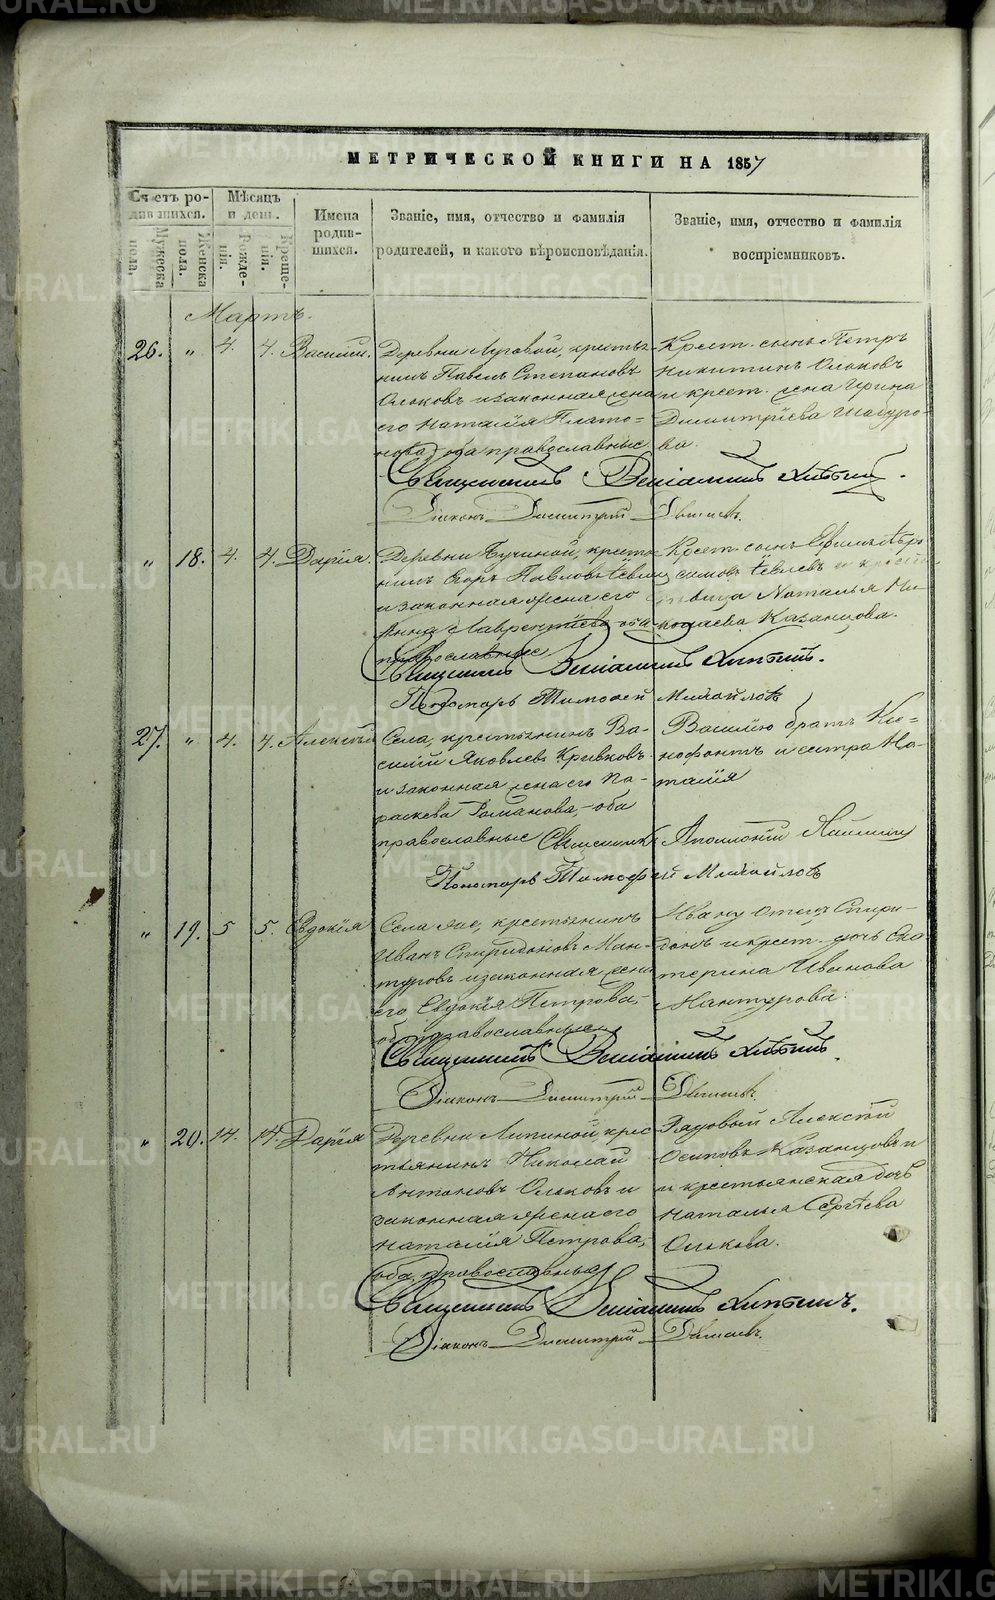 МЕТРИЧЕСКОЙ КНИГИ НА 1857
Счетъ ро-
дившихся.
Мѣсяцъ
и день.
Имена
родив-
шихся.
Званіе, имя, отчество и фамилія
родителей, и какого вѣроисповѣданія.
Званіе, имя, отчество и фамилія
воспріемниковъ.
Мужеска
пола.
Женска
пола.
Рожде-
нія.
Креще-
нія.
Мартъ.
26. " 4. 4. Василій.
Деревни Луговой, кресть
нинъ Павелъ Степановъ
Ольковъ и законная жена
его Наталія Плато-
нова, оба православные
Крест. сынъ Петръ
Никитинъ Ольковъ
и крест. жена Ирина
Димитріева Шабуро-
ва.
Священникъ Веніаминъ
Діаконъ Димитрій
" 18. 4. 4. Дарія.
Деревни крестья
нинъ Егоръ Павловъ
и законная жена его
Анна Лаврентіева оба
православные
Крест. сынъ
и
Наталья Ни
колаева Казанцова.
Священникъ Веніаминъ
Пономарь Тимофей Михайловъ
27. " 4. 4. Алексѣй
Села, крестьянинъ Ва-
силій Яковлевъ Кривковъ
и законная жена его Па-
раскева Романова, оба
православные
Василію братъ Ксе-
нофонтъ и сестра На-
талія
Священникъ Аполлоній
Пономарь Тимофей Михайловъ
" 19. 5 5. Евдокія
Села же, крестьянинъ
Иванъ Спиридоновъ Ман-
туровъ и законная жена
его Евдокія Петрова,
оба православные
Ивану отецъ Спири-
донъ и крест. дочь Ека
терина Иванова
Мантурова.
Священникъ Веніаминъ
Діаконъ Димитрій
" 20. 14. 14. Дарія
Деревни Липиной, крес
тьянинъ Николай
Антоновъ Ольковъ и
законная жена его
Наталія Петрова,
оба православные
Рядовый Алексѣй
Осиповъ Казанцовъ и
и крестьянская дочь
Наталья Сергѣева
Олькова.
Священникъ Веніаминъ
Діаконъ Димитрій
METRIKI.GASO-URAL.RU